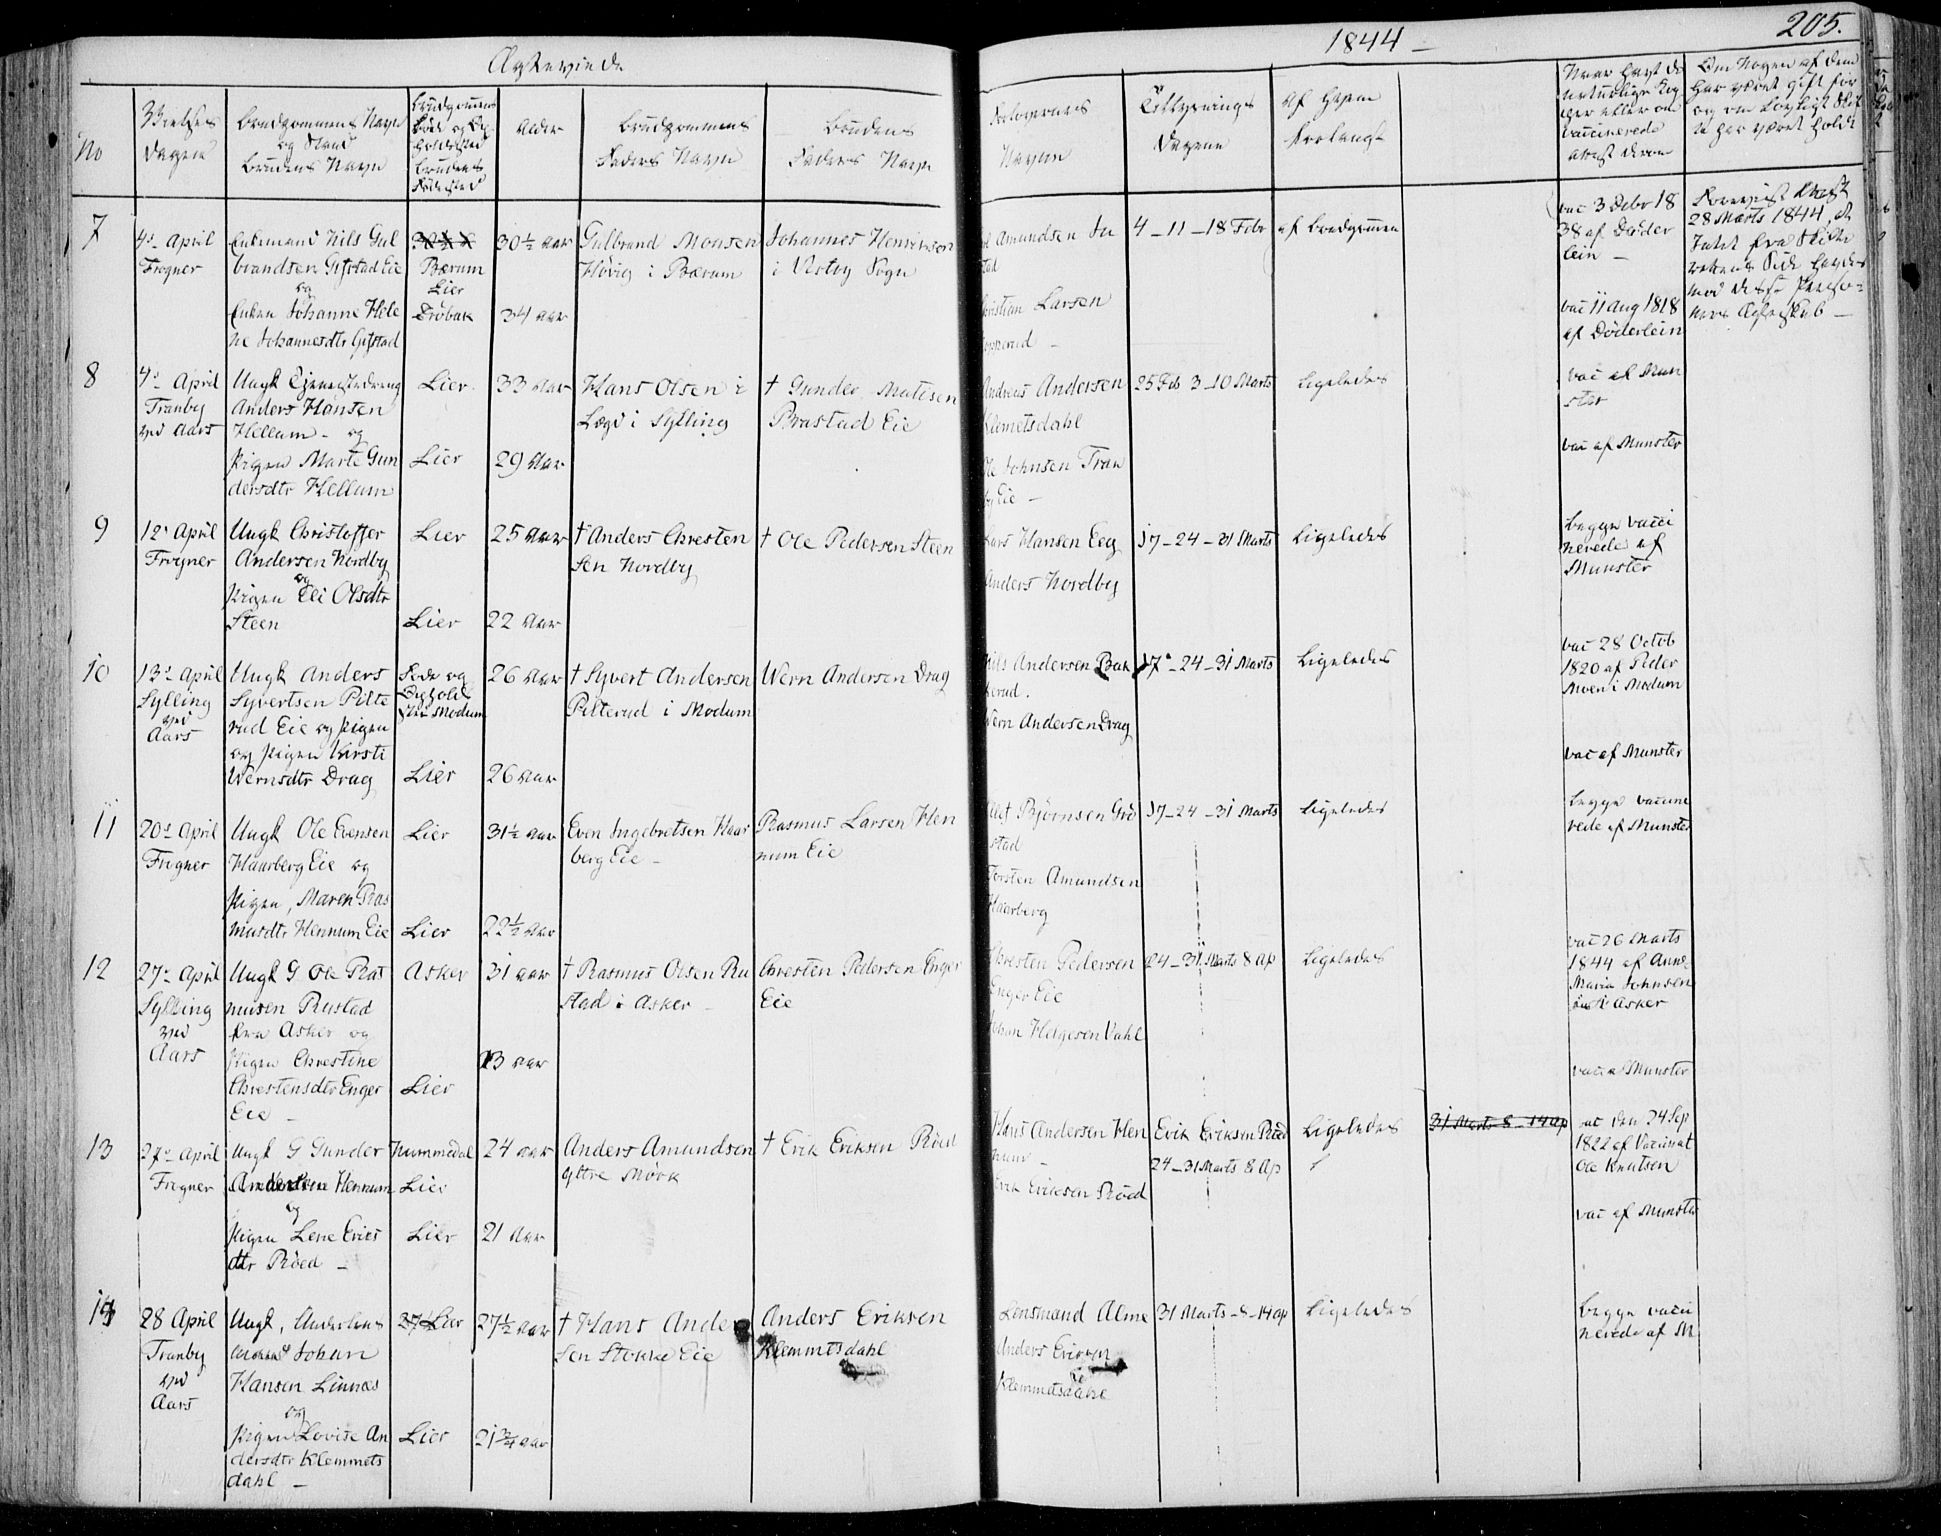 Ægteviede
1844 —
205.
No
Vielses
Dagene
Brudgommens Navn
og Stand
Brudens Navn
Alder
Brudgommens
Faders Navn
Brudens
Faders Navn
Forlovernes
Navne
Tillysnings
Dagene
Af hvem
forlangt
7
4de April
Frogner
Enkemand Nils Gul
brandsen Gjstad Eie
og
Enken Johanne Hele
ne Johannesdtr Gjstad
Bærum
Lier
Drøbak
30½ Aar
34 Aar
Gulbrand Monsen
Høvig i Bærum
Johannes Henriksen
i Vestby Sogn
Amundsen
Christian Larsen
4 - 11 - 18 Febr
af Brudgommen
vac 3 Debr 18
38 af Døder
lein —
vac 11 Aug 1818
af Døderlein
28 Marts 1844, at
Intet fra Skifte
rettens Side haves
mod disse Perso-
ners Ægteskab —
8
4de April
Tranby
ved Aars
Ungk Tjenestedreng
Anders Hansen
Hellum - og
Pigen Marte Gun
dersdtr Hellum
Lier
Lier
33 Aar
29 Aar
Hans Olsen i
Lægd i Sylling
† Gunder Matisen
Brastad Eie
Andreas Andersen
Klemetsdahl
Ole Johnsen Tran
by Eie —
25 Feb 3 - 10 Marts
Ligeledes
vac af Mun
ster
vac af Munster
9
12te April
Frogner
Ungk Christoffer
Andersen Nordby
og
Pigen Eli Olsdtr
Steen
Lier
Lier
25 Aar
22 Aar
† Anders Chresten
sen Nordby
† Ole Pedersen Steen
Lars Hansen Eeg
Anders Nordby
17 - 24 - 31 Marts
Ligeledes
Begge vacci
nerede af
Munster
10
13de April
Sylling
ved
Aars
Ungk Anders
Syvertsen Pilte
rud Eie og Pigen
og Pigen Kirsti
Wernsdtr Drag
Føde og
Opholds
sted Modum
Lier
26 Aar
26 Aar
† Syvert Andersen
Pilterud i Modum
Wern Andersen Drag
Nils Andersen Bak
kerud.
Wern Andersen Drag
17 - 24 - 31 Marts
Ligeledes
vac 28 Octob
1820 af Peder
Moen i Modum
vac af Munster
11
20de April
Frogner
Ungk Ole Evensen
Haarberg Eie og
Pigen, Maren Ras
musdtr Hennum Eie
Lier
Lier
31½ Aar
22½ Aar
Even Ingebretsen Haar
berg Eie —
Rasmus Larsen Hen
num Eie
Bjørnsen
Torsten Amundsen
Haarberg
17 - 24 - 31 Marts
Ligeledes
Begge vaccine
rede af Munster
12
27de April
Sylling
ved
Aars
Ungk G Ole Ras
musen Rustad
fra Asker og
Pigen Chrestine
Chrestensdtr Enger
Eie —
Asker
Lier
31 Aar
23 Aar
† Rasmus Olsen Ru
stad i Asker —
Chresten Pedersen Enger
Eie
Chresten Pedersen
Enger Eie
Johan Helgesen Vahl
24 - 31 Marts 8 Ap
Ligeledes
vac 26 Marts
1844 af Anne
Maria Johnsen
i Asker
vac af Munster
13
27de April
Frogner
Ungk G Gunder
Andersen Hennum
og
Pigen Lene Erics
dtr Röed —
Nummedal
Lier
Lier
24 Aar
21 Aar
Anders Amundsen
yttre Mörk
† Erik Eriksen Röed
Hans Andersen Hen
num —
Erik Eriksen Röed
Erik Eriksen Röed
24 - 31 Marts 8 Ap
Ligeledes
31 Marts 8 - 14 Ap
vac den 24 Sep
1822 af Vaccinat
Ole Knutsen
vac af Munster
14
28 April
Tranby
ved
Aars
Ungk, Underlens
mand Johan
Hansen Linnes
og
Pigen Lovise An
dersdtr Klemmets
dahl —
Lier
Lier
27½ Aar
21¾ Aar
† Hans Ander
sen Stokke Eie
Anders Eriksen
Klemmetsdahl
Lensmand Alme
Anders Eriksen
Klemmetsdahl
31 Marts - 8 - 14 Ap
Ligeledes
Begge vacci
nerede af M